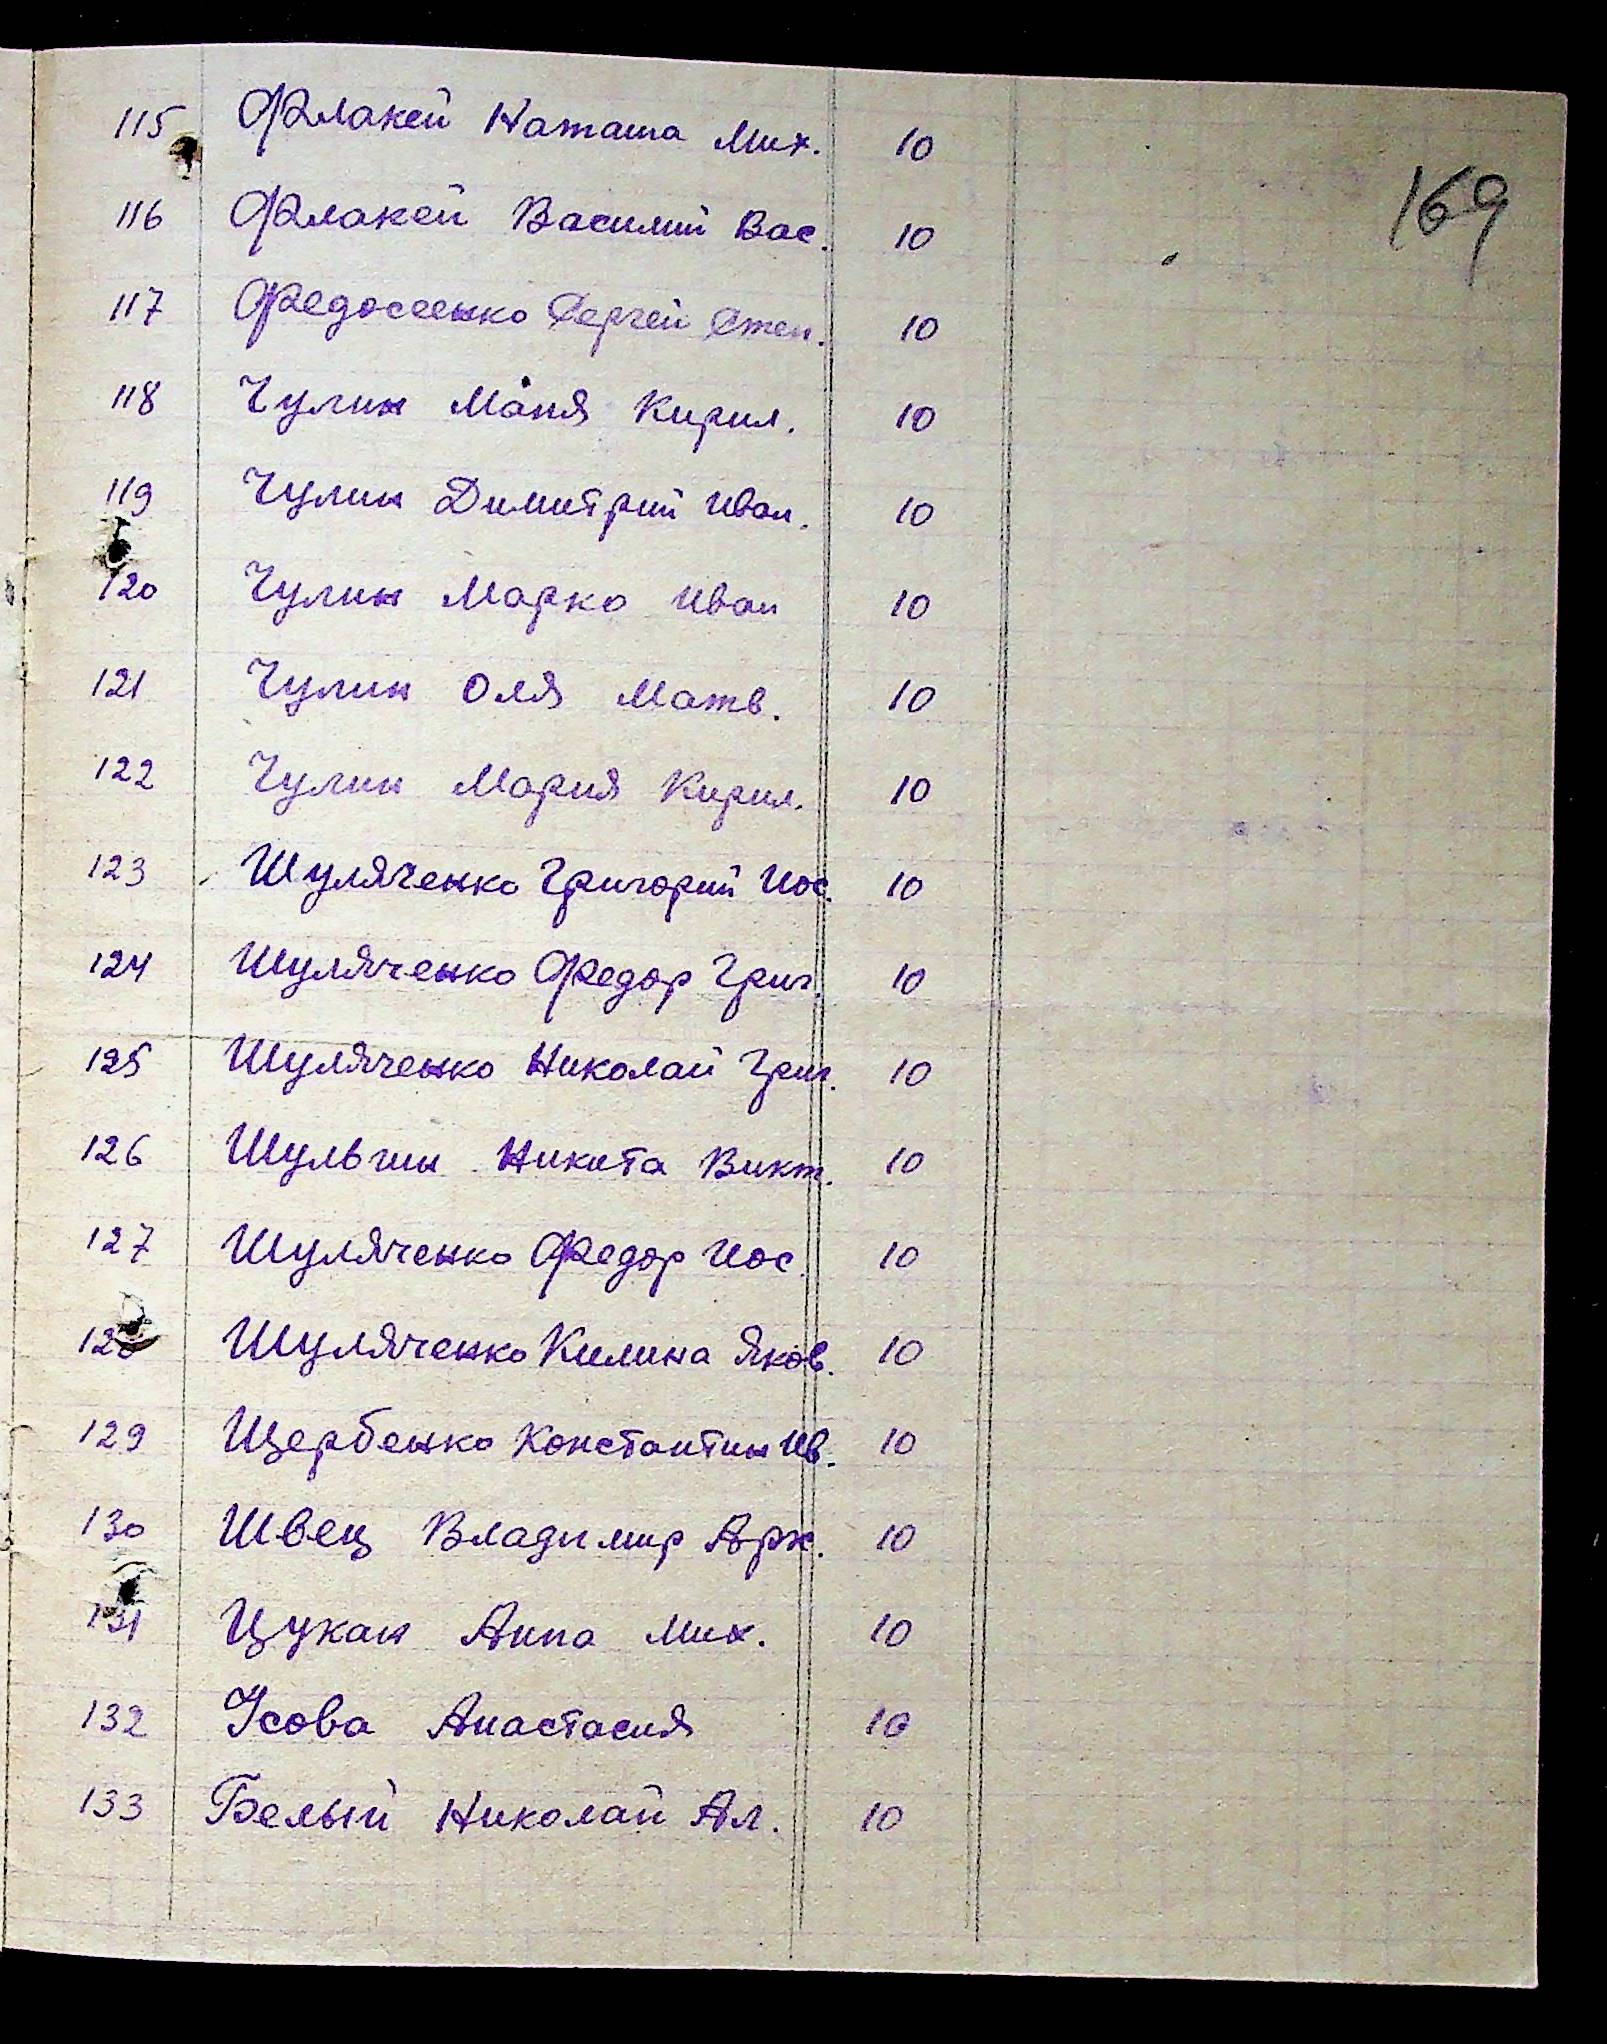 169
115 Флакей Наташа Мих. 10
116 Флакей Василий Вас. 10
117 Федосеенко Сергей Степ. 10
118 Чулин Маня Кирил. 10
119 Чулин Димитрий Иван. 10
120 Чулин Марко Иван 10
121 Чулин Оля Матв. 10
122 Чулин Мария Кирил. 10
123 Шуляченко Григорий Иос. 10
124 Шуляченко Федор Григ. 10
125 Шуляченко Николай Григ. 10
126 Шульгин Никита Викт. 10
127 Шуляченко Федор Иос. 10
128 Шуляченко Килина Яков. 10
129 Щербенко Константин Ив. 10
130 Швец Владимир Арх. 10
131 Цукан Анна Мих. 10
132 Усова Анастасия 10
133 Белый Николай Ал. 10